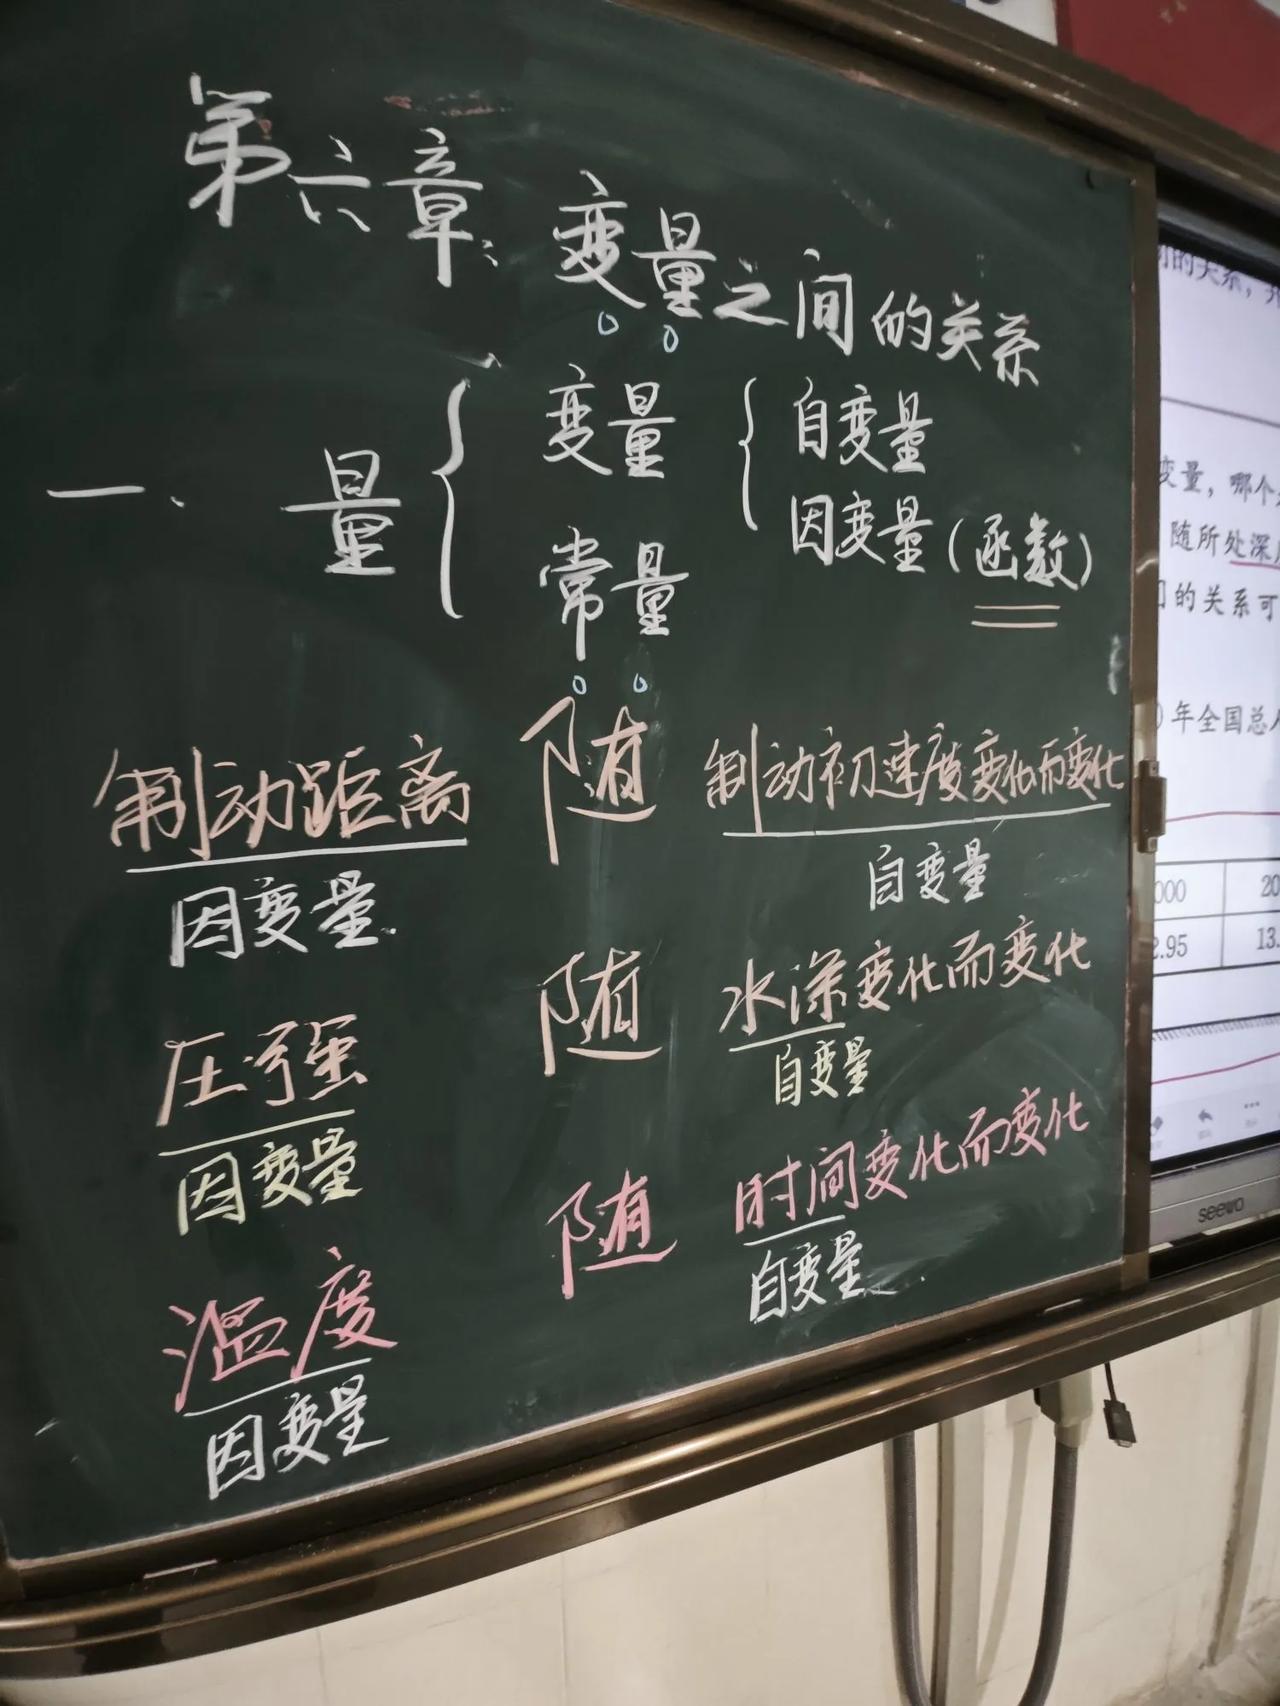 第六章:变量之间的关系
一、量{变量{自变量
因变量(函数)
常量
制动距离 随 制动初速度变化而变化
因变量. 自变量
压强 随 水深变化而变化
因变量 自变量
温度 随 时间变化而变化
因变量 自变量.
的关系,
变量,哪个
随所处深
的关系可
年全国总人
000 20
2.95 13.
seewo